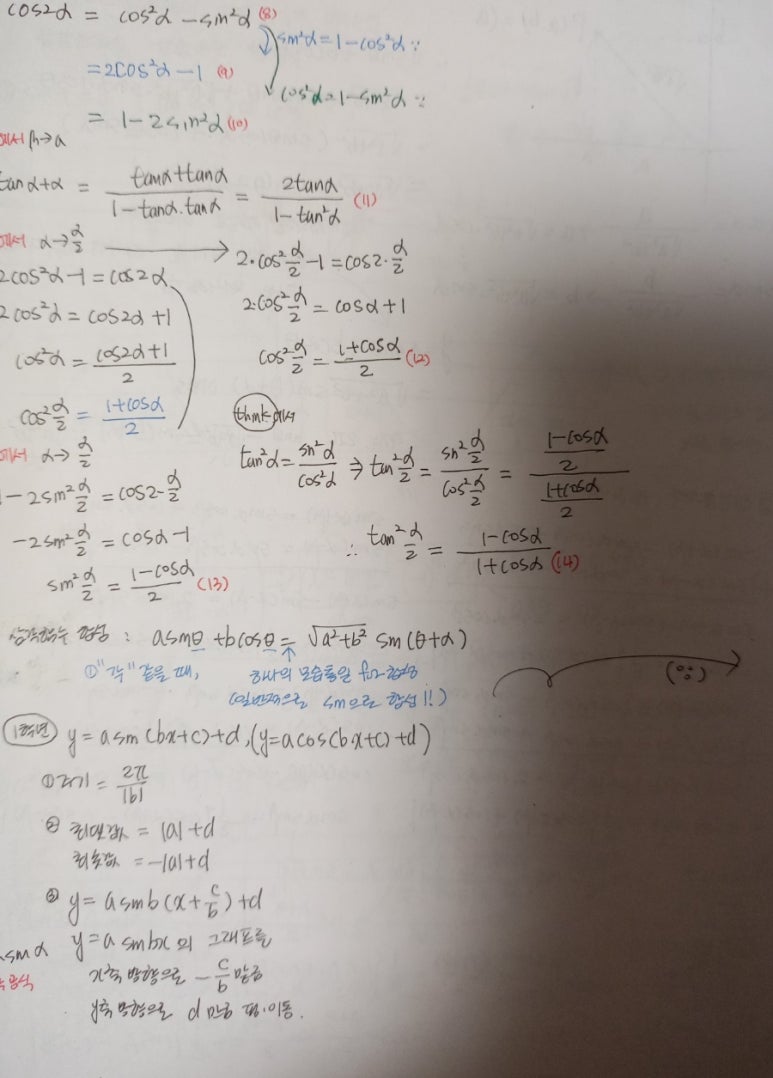 cos2α = cos²α - sin²α (8)
sin²α = 1 - cos²α ∵
= 2cos²α - 1 (9)
cos²α = 1 - sin²α ∵
= 1 - 2sin²α (10)
에서 β→α
tanα+α = \frac{tanα+tanα}{1-tanα·tanα} = \frac{2tanα}{1-tan²α} (11)
에서 α→\frac{α}{2}
2cos²α - 1 = cos2α
2cos²α = cos2α + 1
cos²α = \frac{cos2α+1}{2}
cos²\frac{α}{2} = \frac{1+cosα}{2}
2·cos²\frac{α}{2} - 1 = cos2·\frac{α}{2}
2·cos²\frac{α}{2} = cosα + 1
cos²\frac{α}{2} = \frac{1+cosα}{2} (12)
에서 α→\frac{α}{2}
1 - 2sin²\frac{α}{2} = cos2·\frac{α}{2}
-2sin²\frac{α}{2} = cosα - 1
sin²\frac{α}{2} = \frac{1-cosα}{2} (13)
think
tan²α = \frac{sin²α}{cos²α} ⇒ tan²\frac{α}{2} = \frac{sin²\frac{α}{2}}{cos²\frac{α}{2}} = \frac{\frac{1-cosα}{2}}{\frac{1+cosα}{2}}
∴ tan²\frac{α}{2} = \frac{1-cosα}{1+cosα} (14)
삼각함수 합성 : asinθ + bcosθ = √(a²+b²) sin(θ+α)
①"각" 같을 때,
하나의 모습통일
(일반적으로 sin으로 합성!!)
1학년 y = asin(bx+c)+d, (y=acos(bx+c)+d)
① 주기 = \frac{2π}{|b|}
② 최댓값 = |a|+d
최솟값 = -|a|+d
③ y = asinb(x+\frac{c}{b})+d
y = a sinbx 의 그래프를
x축 방향으로 -\frac{c}{b} 만큼
y축 방향으로 d 만큼 평·이동.
sinα
공식